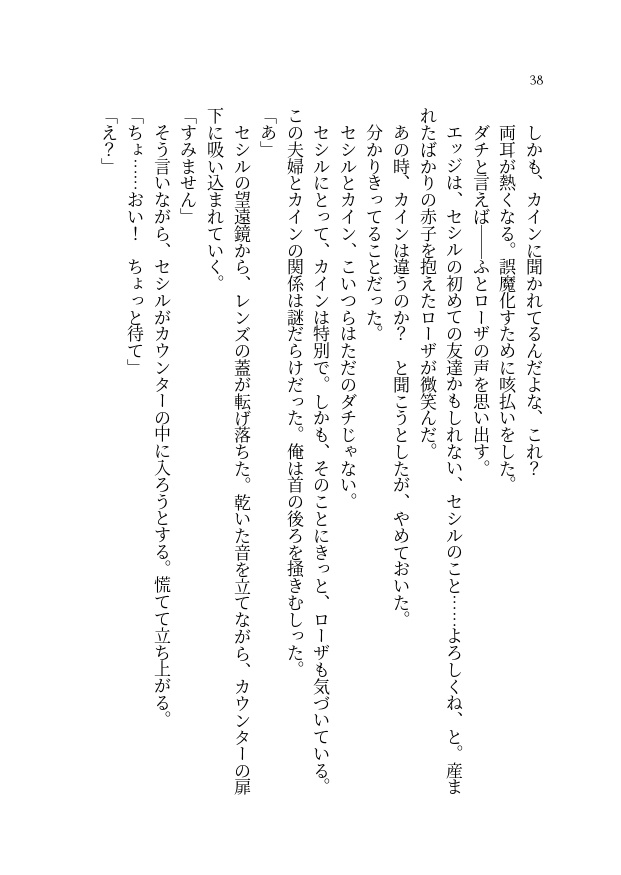 38
しかも、カインに聞かれてるんだよな、これ？
両耳が熱くなる。誤魔化すために咳払いをした。
ダチと言えば――ふとローザの声を思い出す。
エッジは、セシルの初めての友達かもしれない、セシルのこと……よろしくね、と。産ま
れたばかりの赤子を抱えたローザが微笑んだ。
あの時、カインは違うのか？　と聞こうとしたが、やめておいた。
分かりきってることだった。
セシルとカイン、こいつらはただのダチじゃない。
セシルにとって、カインは特別で。しかも、そのことにきっと、ローザも気づいている。
この夫婦とカインの関係は謎だらけだった。俺は首の後ろを掻きむしった。
「あ」
セシルの望遠鏡から、レンズの蓋が転げ落ちた。乾いた音を立てながら、カウンターの扉
下に吸い込まれていく。
「すみません」
そう言いながら、セシルがカウンターの中に入ろうとする。慌てて立ち上がる。
「ちょ……おい！　ちょっと待て」
「え？」